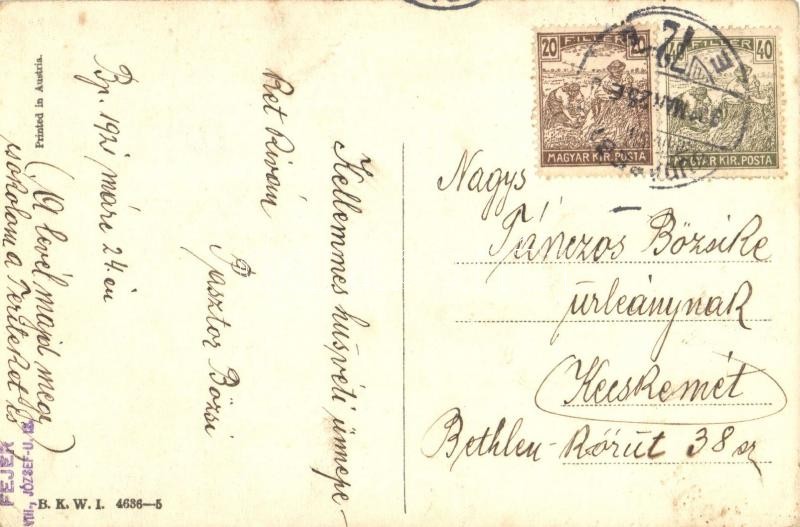 Kellemmes húsvéti ünnepe-
ket kíván
Pásztor Bözsi
Bp. 1921 márc 24.én
(A levél majd megy
csokolom a Teritéket is)
Printed in Austria.
B. K. W. I. 4636—5
FEJÉR
JÓZSEF-U.
20 FILLÉR 20
MAGYAR KIR. POSTA
40 FILLÉR 40
MAGYAR KIR. POSTA
Nagys
Tánczos Bözsike
úrleánynak
Kecskemét
Bethlen-körút 38 sz